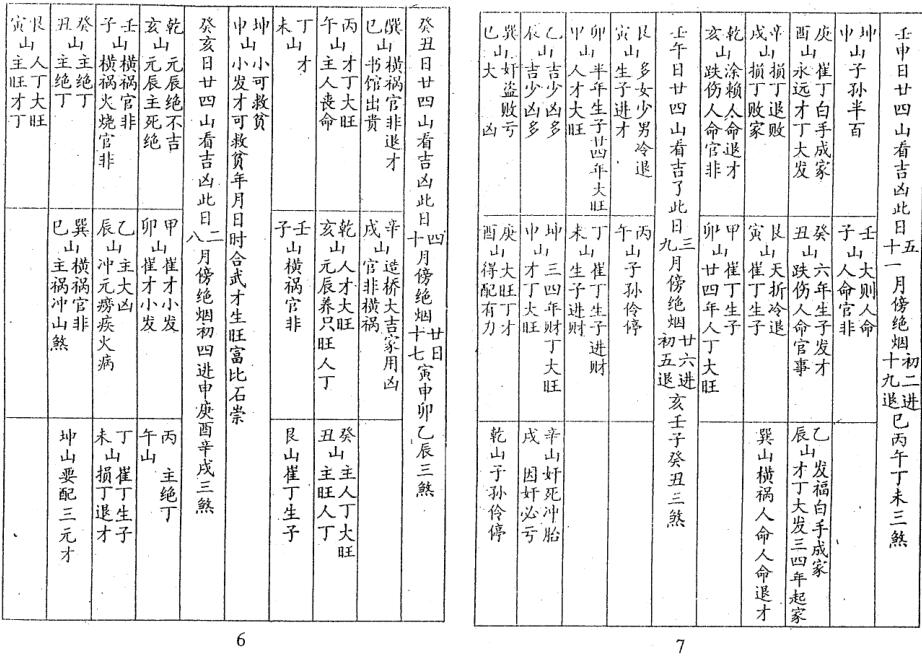 癸丑日廿四山看吉凶此日四十月傍绝烟廿日十七寅申卯乙辰三煞
巽山横祸官非退才
巳山书馆出贵
辛山造桥大吉家用凶
戌山官非横祸
丙山才丁大旺
午山主人丧命
乾山人才大旺
亥山元辰养只旺人丁
癸山主人丁大旺
丑山主旺人丁
丁未山才
壬子山横祸官非
艮山崔丁生子
坤山小可救贫
申山小发才可救贫年月日时合武才生旺富比石崇
癸亥日廿四山看吉凶此日二八月傍绝烟初四进申庚酉辛戌三煞
乾山元辰绝不吉
亥山元辰主死绝
甲山崔才小发
卯山崔才小发
丙午山主绝丁
壬山横祸官非
子山横祸火烧官非
乙山主大凶
辰山冲元痨疾火病
丁山崔丁生子
未山损丁退才
癸山主绝丁
丑山主绝丁
巽山横祸官非
巳山主祸冲山煞
坤山要配三元才
艮山人丁大旺
寅山主旺才丁
6
壬申日廿四山看吉凶此日五十一月傍绝烟初二进十九退巳丙午丁未三煞
坤申山子孙半百
壬山大则人命
子山人命官非
庚山崔丁白手成家
酉山永远才丁大发
癸山六年生子发才
丑山跌伤人命官事
乙山发福白手成家
辰山才丁大发三四年起家
辛山损丁退败
戌山损丁败家
艮山天折冷退
寅山崔丁生子
巽山横祸人命人命退才
乾山涂赖人命退才
亥山跌伤人命官非
甲山崔丁生子
卯山廿四年人丁大旺
壬午日廿四山看吉了此日三九月傍绝烟廿六进初五退亥壬子癸丑三煞
艮山多女少男冷退
寅山生子进才
丙午山子孙伶俜
卯山半年生子廿四年大旺
甲山人才大旺
丁山崔丁生子进财
未山生子进财
乙山吉少凶多
辰山吉少凶多
坤山三四年财丁大旺
申山才丁大旺
辛山奸死冲胎
戌山因奸必亏
巽山奸盗败亏
巳山大凶
庚山大旺丁才
酉山得配有力
乾山子孙伶俜
7